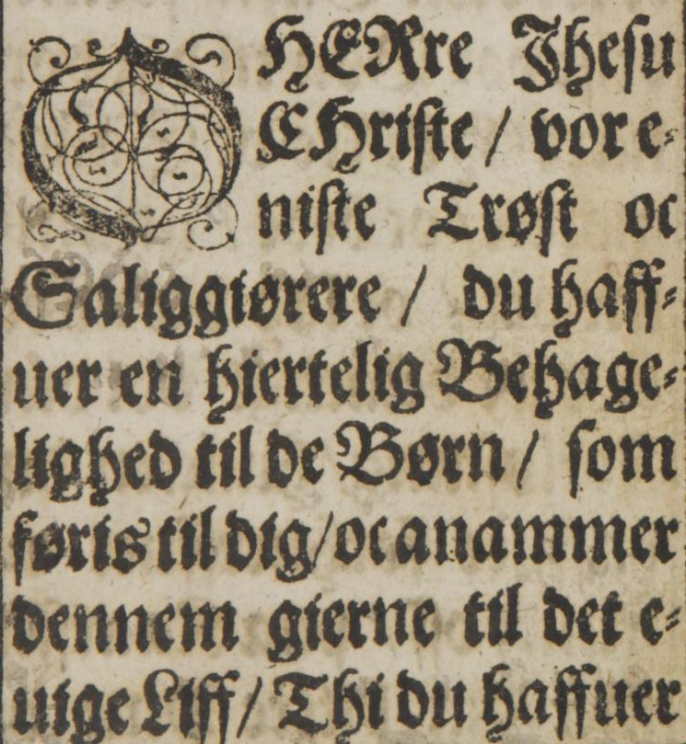 O HERre Jhesu
CHriste / vor e-
niste Trøst oc
Saliggiørere / du haff-
uer en hiertelig Behage-
lighed til de Børn / som
føris til dig / oc anammer
dennem gierne til det e-
uige Liff / Thi du haffuer